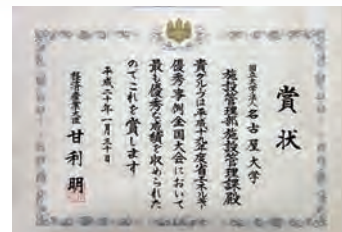 賞状
国立大学法人 名古屋大学
施設管理部施設管理課殿
貴グループは平成十九年度省エネルギー
優秀事例全国大会において
最も優秀な成績を収められた
のでこれを賞します
平成二十年一月三十日
経済産業大臣 甘利 明